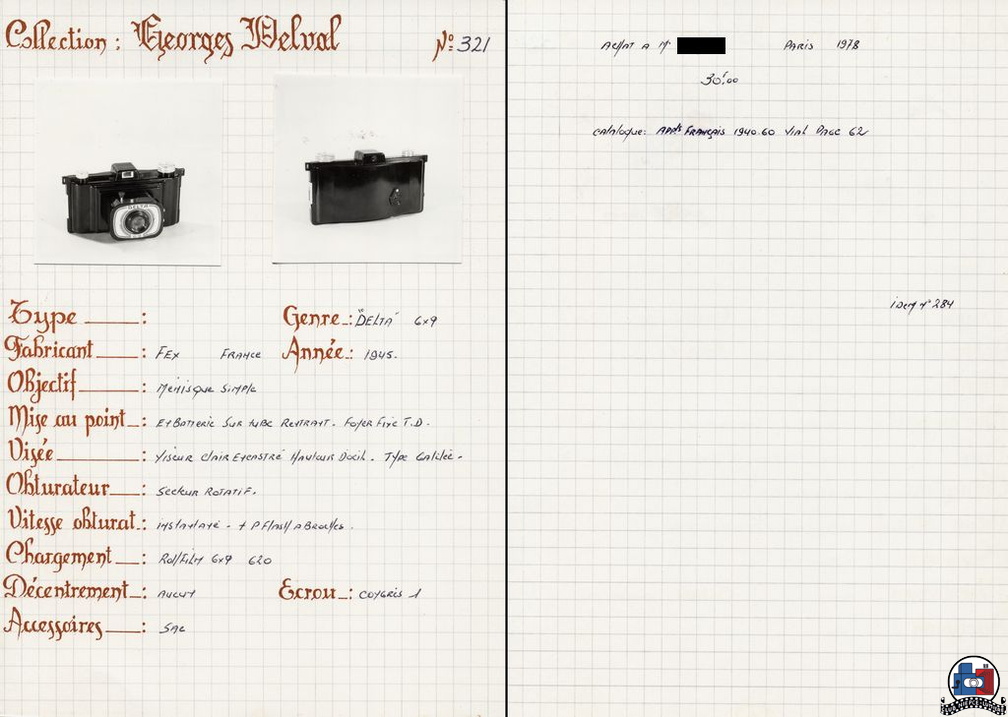 Collection : Georges Delval
N° 321
DELTA
Type :
Genre : "DELTA" 6x9
Fabricant : FEX FRANCE
Année : 1945.
Objectif : Ménisque Simple
Mise au point : En Batterie Sur tube Rentrant. Foyer Fixe T.D.
Visée : Viseur Clair Encastré Hauteur D'oeil. Type Galilée.
Obturateur : Secteur Rotatif.
Vitesse obturat. : instantané - + P Flash a Broches.
Chargement : RollFilm 6x9 620
Décentrement : Aucun
Ecrou : congrès 1
Accessoires : Sac
ACHAT A Mr PARIS 1978
30F.00
Catalogue: APPts FRANçais 1940.60 Vial Page 62
idem n° 284